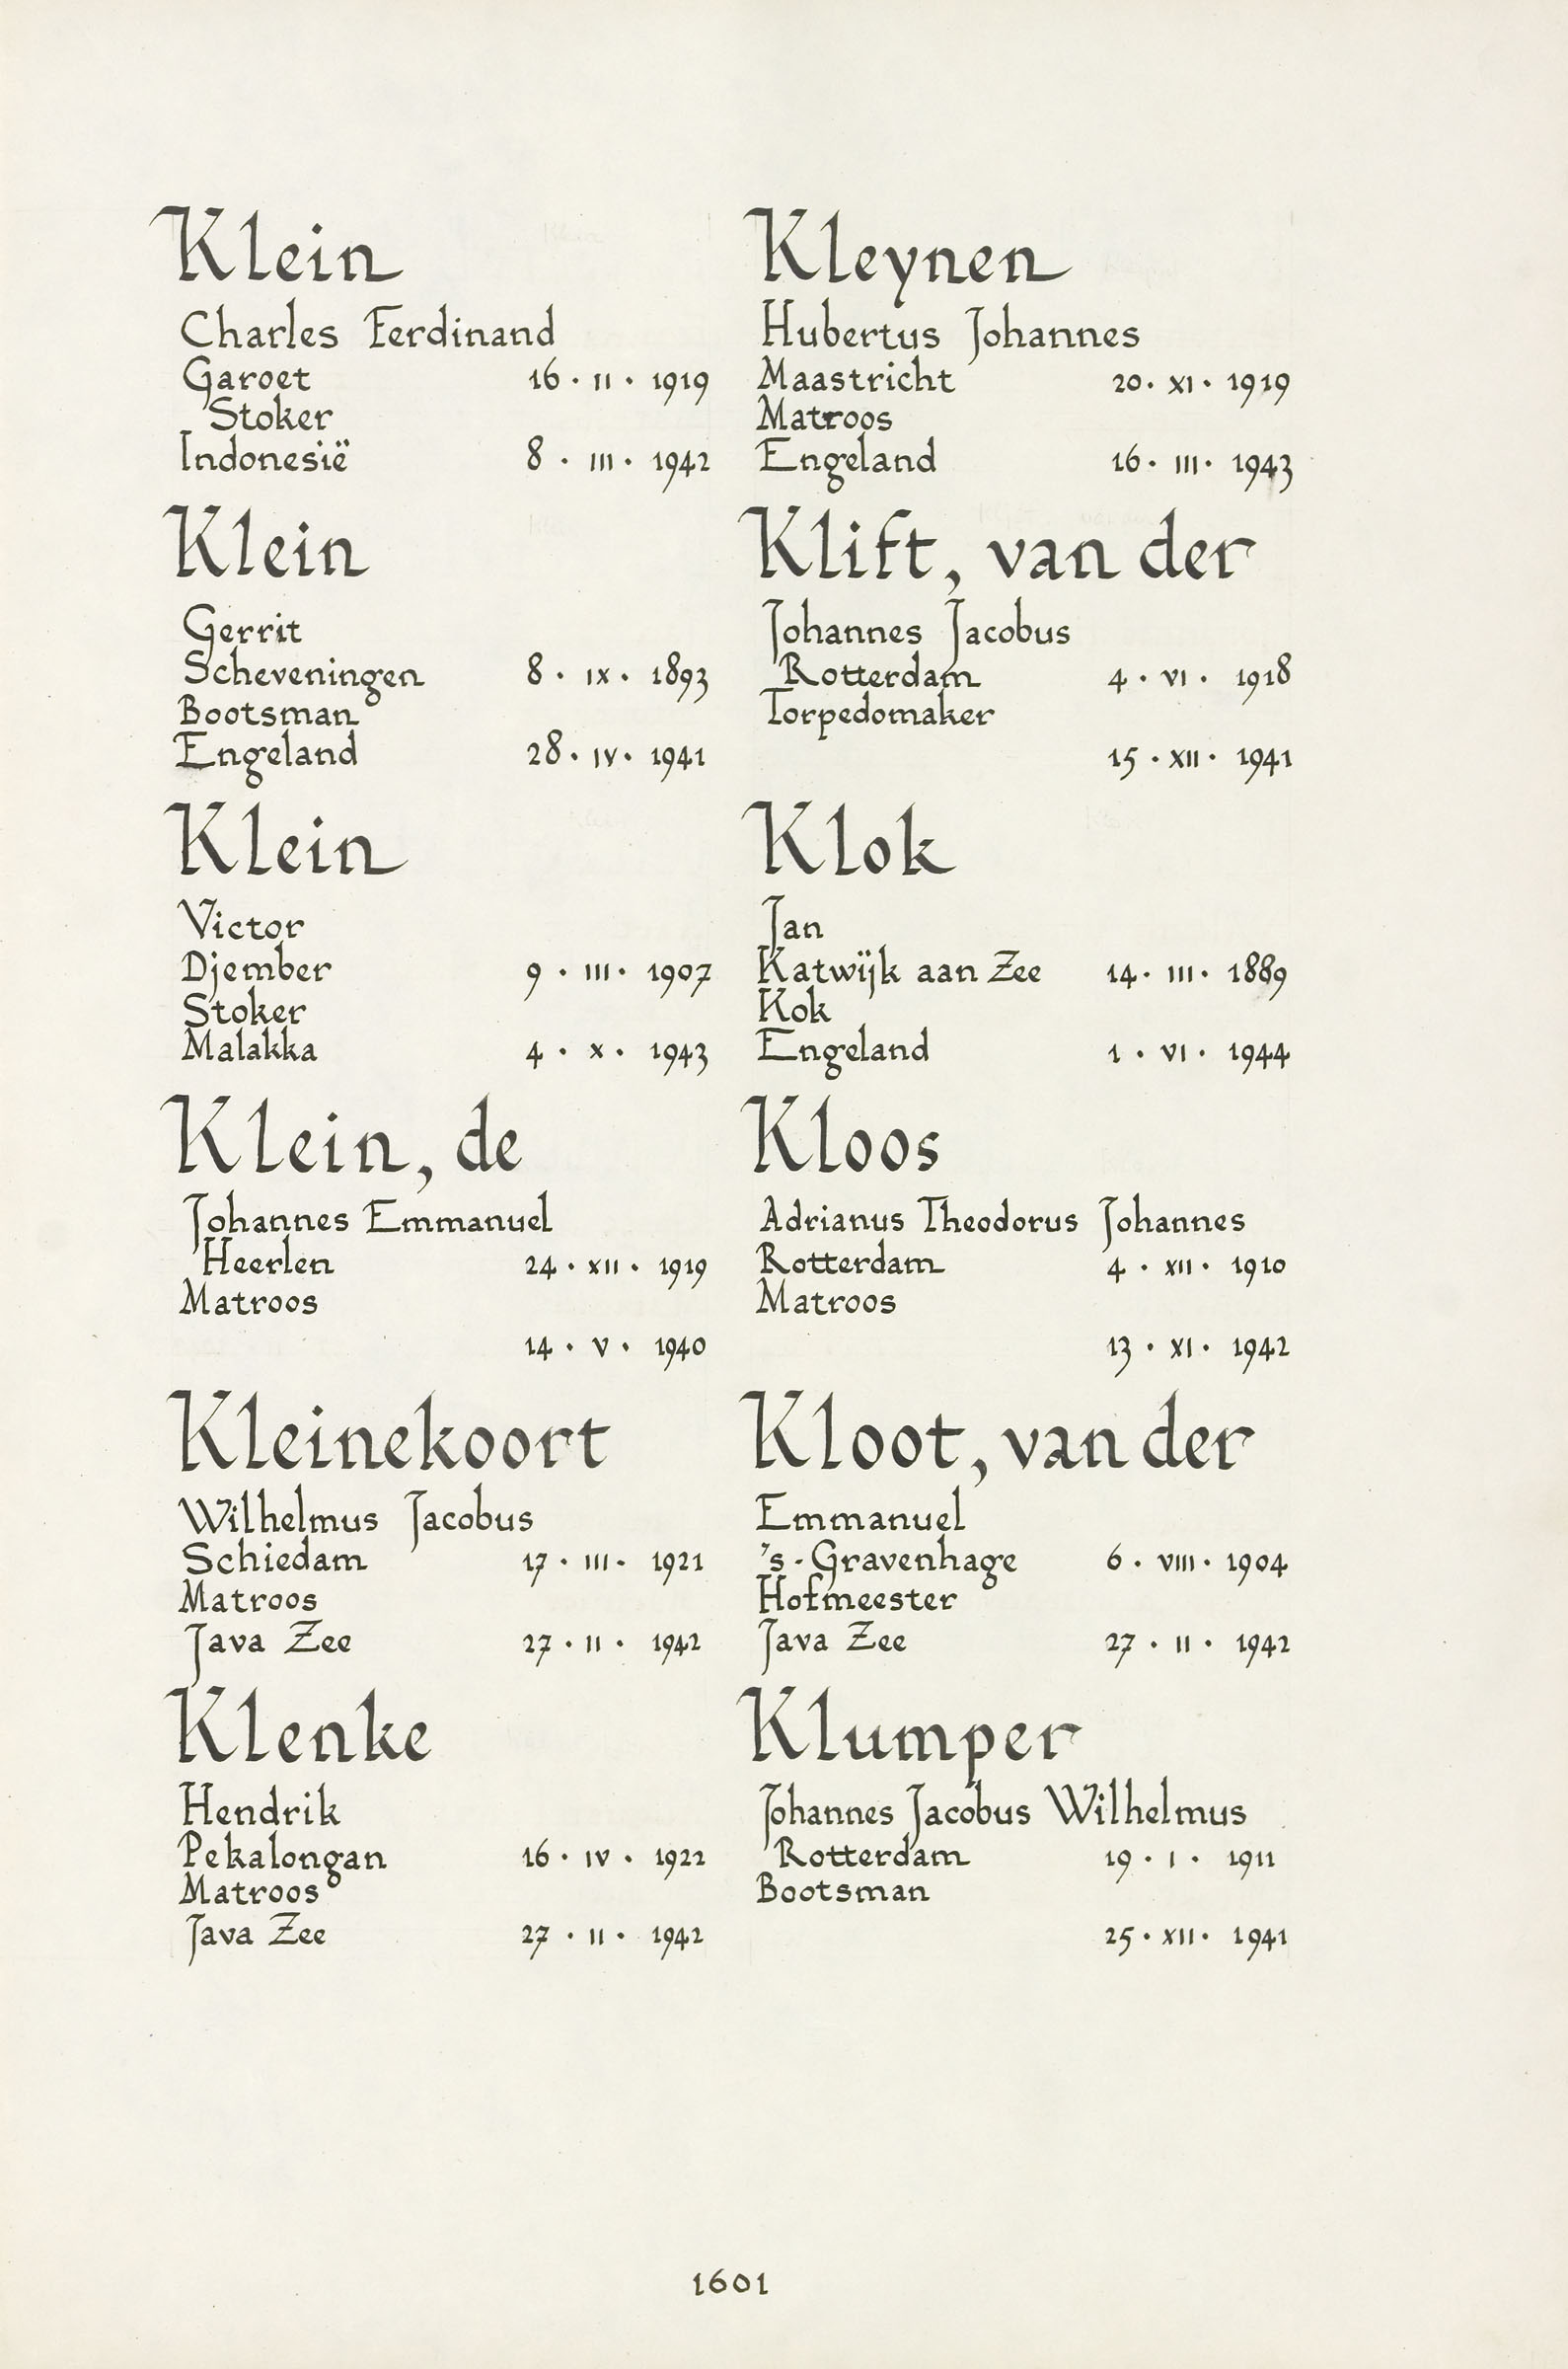 Klein
Charles Ferdinand
Garoet 16 · II · 1919
Stoker
Indonesië 8 · III · 1942
Klein
Gerrit
Scheveningen 8 · IX · 1893
Bootsman
Engeland 28 · IV · 1941
Klein
Victor
Djember 9 · III · 1907
Stoker
Malakka 4 · X · 1943
Klein, de
Johannes Emmanuel
Heerlen 24 · XII · 1919
Matroos
14 · V · 1940
Kleinekoort
Wilhelmus Jacobus
Schiedam 17 · III · 1921
Matroos
Java Zee 27 · II · 1942
Klenke
Hendrik
Pekalongan 16 · IV · 1922
Matroos
Java Zee 27 · II · 1942
Kleynen
Hubertus Johannes
Maastricht 20 · XI · 1919
Matroos
Engeland 16 · III · 1943
Klift, van der
Johannes Jacobus
Rotterdam 4 · VI · 1918
Torpedomaker
15 · XII · 1941
Klok
Jan
Katwijk aan Zee 14 · III · 1889
Kok
Engeland 1 · VI · 1944
Kloos
Adrianus Theodorus Johannes
Rotterdam 4 · XII · 1910
Matroos
13 · XI · 1942
Kloot, van der
Emmanuel
's-Gravenhage 6 · VIII · 1904
Hofmeester
Java Zee 27 · II · 1942
Klumper
Johannes Jacobus Wilhelmus
Rotterdam 19 · I · 1911
Bootsman
25 · XII · 1941
1601